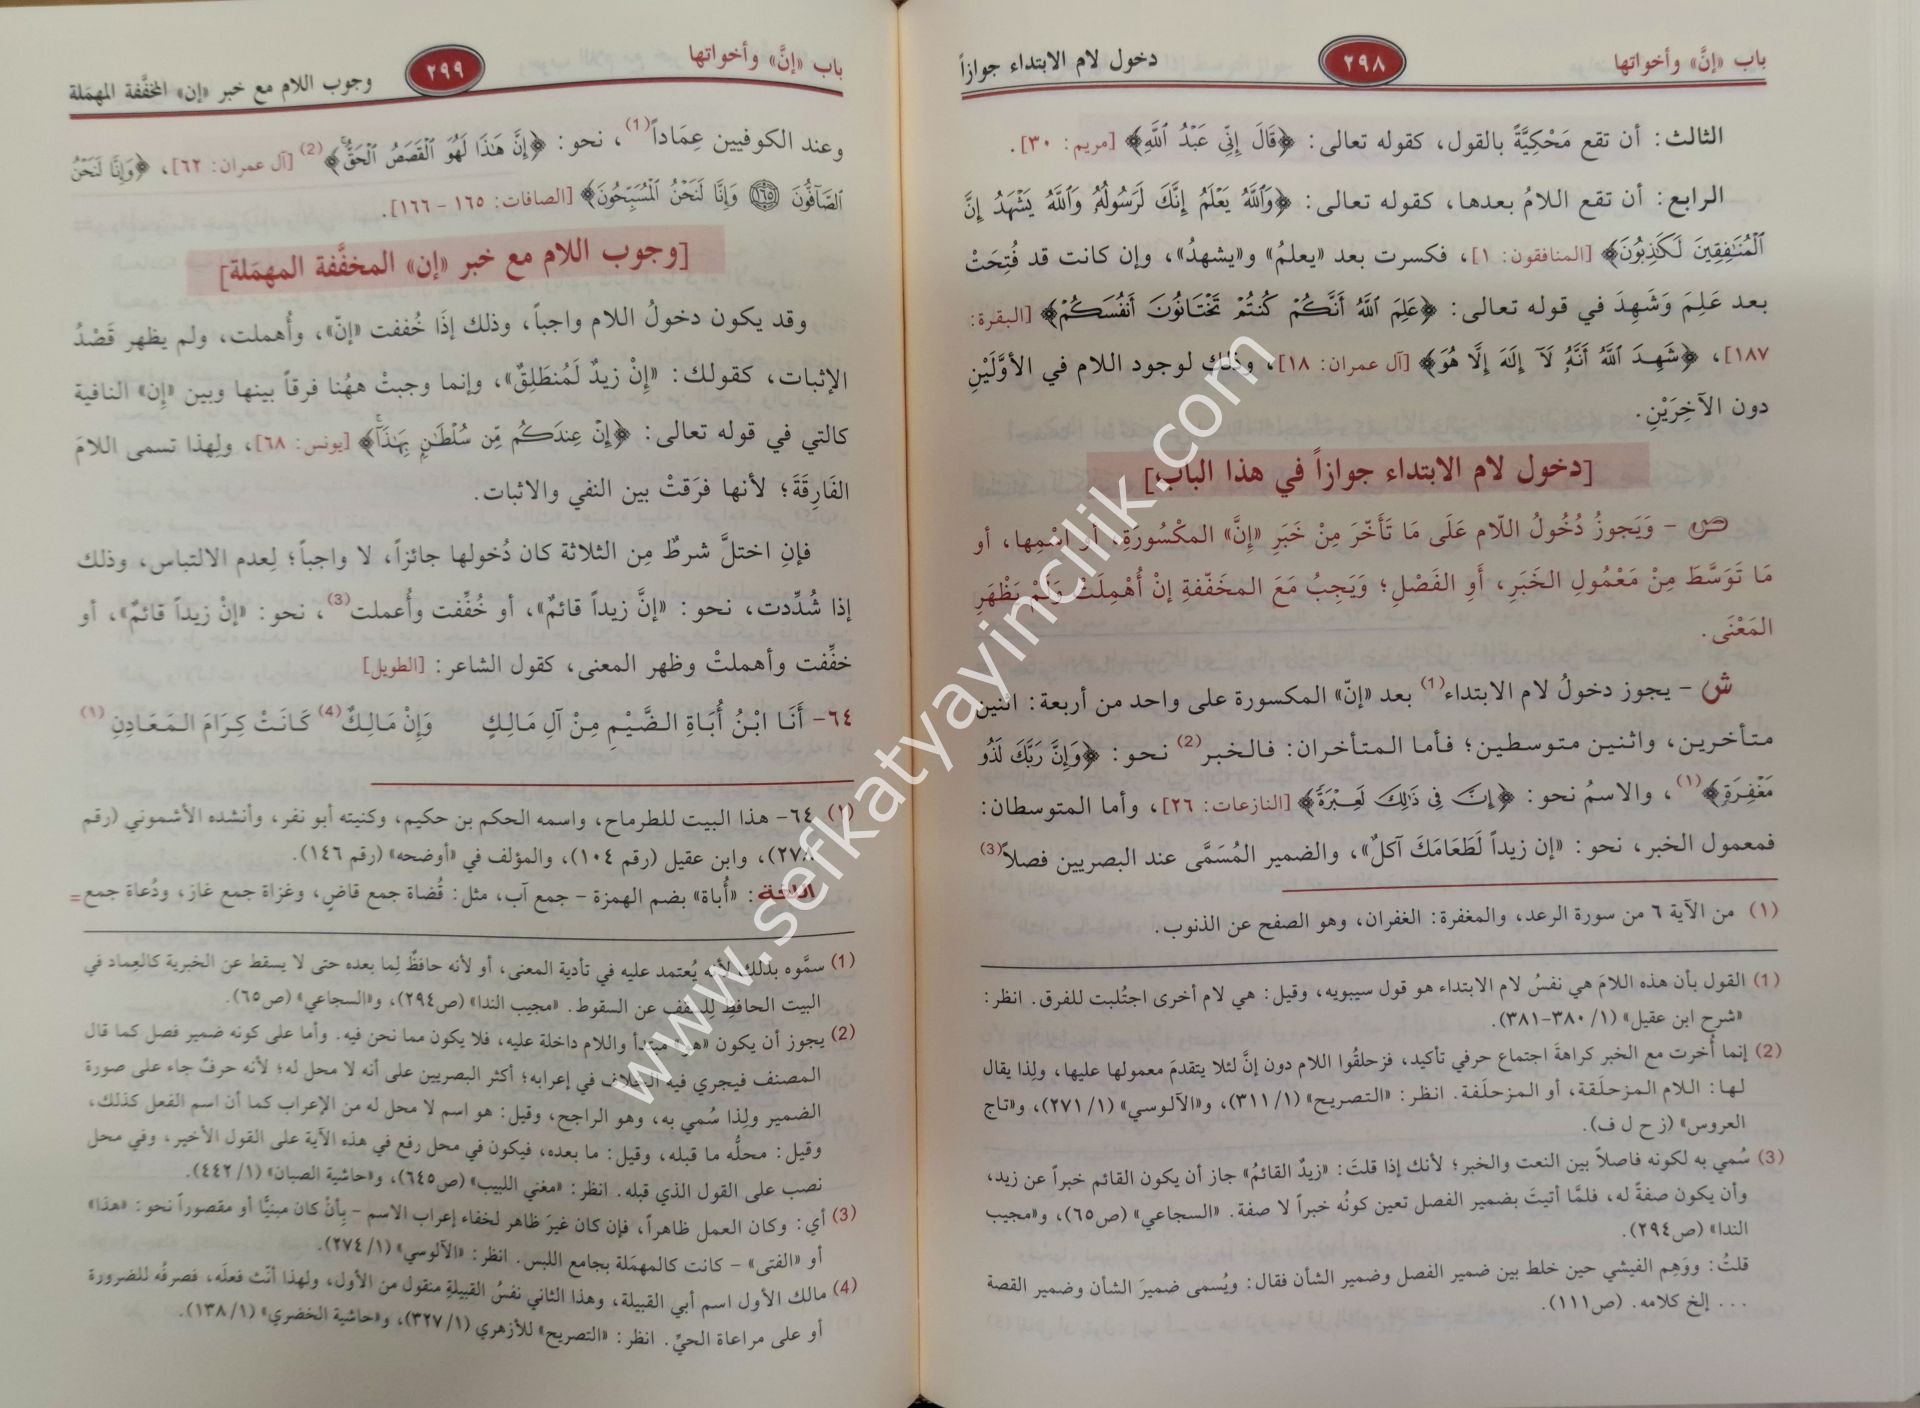 باب «إنَّ» وأخواتها
٢٩٨
دخول لام الابتداء جوازاً
الثالث: أن تقع مَحْكِيَّةً بالقول، كقوله تعالى: ﴿قَالَ إِنِّي عَبْدُ ٱللَّهِ﴾ [مريم: ٣٠].
الرابع: أن تقع اللامُ بعدها، كقوله تعالى: ﴿وَٱللَّهُ يَعْلَمُ إِنَّكَ لَرَسُولُهُۥ وَٱللَّهُ يَشْهَدُ إِنَّ
ٱلْمُنَـٰفِقِينَ لَكَـٰذِبُونَ﴾ [المنافقون: ١]، فكسرت بعد «يعلمُ» و«يشهدُ»، وإن كانت قد فُتِحَتْ
بعد عَلِمَ وَشَهِدَ في قوله تعالى: ﴿عَلِمَ ٱللَّهُ أَنَّكُمْ كُنتُمْ تَخْتَانُونَ أَنفُسَكُمْ﴾ [البقرة:
١٨٧]، ﴿شَهِدَ ٱللَّهُ أَنَّهُۥ لَآ إِلَـٰهَ إِلَّا هُوَ﴾ [آل عمران: ١٨]، وذلك لوجود اللام في الأوَّلَيْنِ
دون الآخِرَيْنِ.
[دخول لام الابتداء جوازاً في هذا الباب]
ص - وَيَجوزُ دُخُولُ اللّام عَلَى مَا تَأَخّرَ مِنْ خَبَرِ «إِنَّ» المكْسُورَةِ، أو اسْمِها، أو
مَا تَوَسَّطَ مِنْ مَعْمُولِ الخَبَرِ، أَوِ الفَصْلِ؛ وَيَجِبُ مَعَ المخَفّفةِ إنْ أُهْمِلَتْ وَلَمْ يَظْهَرِ
المَعْنَى.
ش - يجوز دخولُ لام الابتداء(1) بعد «إنّ» المكسورة على واحد من أربعة: اثنين
متأخرين، واثنين متوسطين؛ فأما المتأخران: فالخبر(2) نحو: ﴿وَإِنَّ رَبَّكَ لَذُو
مَغْفِرَةٍ﴾(١)، والاسمُ نحو: ﴿إِنَّ فِي ذَٰلِكَ لَعِبْرَةً﴾ [النازعات: ٢٦]، وأما المتوسطان:
فمعمول الخبر، نحو: «إن زيداً لَطَعَامَكَ آكلٌ»، والضمير المُسَمَّى عند البصريين فصلاً(3)
(١) من الآية ٦ من سورة الرعد، والمغفرة: الغفران، وهو الصفح عن الذنوب.
(1) القول بأن هذه اللامَ هي نفسُ لام الابتداء هو قول سيبويه، وقيل: هي لام أخرى اجتُلبت للفرق. انظر:
«شرح ابن عقيل» (١/ ٣٨٠-٣٨١).
(2) إنما أُخرت مع الخبر كراهةَ اجتماع حرفي تأكيد، فزحلقُوا اللام دون إنَّ لئلا يتقدمَ معمولها عليها، ولِذا يقال
لـها: اللام المزحلَقة، أو المزحلَفة. انظر: «التصريح» (١/ ٣١١)، و«الآلوسي» (١/ ٢٧١)، و«تاج
العروس» (ز ح ل ف).
(3) سُمي به لكونه فاصلاً بين النعت والخبر؛ لأنك إذا قلتَ: «زيدٌ القائمُ» جاز أن يكون القائم خبراً عن زيد،
وأن يكون صفةً له، فلمَّا أتيتَ بضمير الفصل تعين كونُه خبراً لا صفة. «السجاعي» (ص٦٥)، و«مجيب
الندا» (ص٢٩٤).
قلتُ: ووَهِم الفيشي حين خلط بين ضمير الفصل وضمير الشأن فقال: ويُسمى ضميرَ الشأن وضمير القصة
... إلخ كلامه. (ص١١١).
باب «إنَّ» وأخواتها
٢٩٩
وجوب اللام مع خبر «إن» المخفَّفة المهمَلة
وعند الكوفيين عِمَاداً(1)، نحو: ﴿إِنَّ هَـٰذَا لَهُوَ ٱلْقَصَصُ ٱلْحَقُّ﴾(2) [آل عمران: ٦٢]، ﴿وَإِنَّا لَنَحْنُ
ٱلصَّآفُّونَ ۝١٦٥ وَإِنَّا لَنَحْنُ ٱلْمُسَبِّحُونَ﴾ [الصافات: ١٦٥ - ١٦٦].
[وجوب اللام مع خبر «إن» المخفَّفة المهمَلة]
وقد يكون دخولُ اللام واجباً، وذلك إذَا خُففت «إنّ»، وأُهملت، ولم يظهر قَصْدُ
الإثبات، كقولك: «إنْ زيدٌ لَمُنطَلِقٌ»، وإنما وجبتْ ههُنا فرقاً بينها وبين «إن» النافية
كالتي في قوله تعالى: ﴿إِنْ عِندَكُم مِّن سُلْطَـٰنٍ بِهَـٰذَآ﴾ [يونس: ٦٨]، ولِهذا تسمى اللامَ
الفَارِقَةَ؛ لأنها فرَقتْ بين النفي والاثبات.
فإنِ اختلَّ شرطٌ مِن الثلاثة كان دُخولها جائزاً، لا واجباً؛ لِعدم الالتباس، وذلك
إذا شُدِّدت، نحو: «إنَّ زيداً قائمٌ»، أو خُفِّفت وأُعملت(3)، نحو: «إنْ زيداً قائمٌ»، أو
خفِّفت وأهملتْ وظهر المعنى، كقول الشاعر: [الطويل]
٦٤- أَنَا ابْنُ أُبَاةِ الضَّيْمِ مِنْ آلِ مَالِكٍ وَإِنْ مَالِكٌ(4) كَانَتْ كِرَامَ المَعَادِنِ (١)
(١) ٦٤- هذا البيت للطرماح، واسمه الحكم بن حكيم، وكنيته أبو نفر، وأنشده الأشموني (رقم
٢٧٨)، وابن عقيل (رقم ١٠٤)، والمؤلف في «أوضحه» (رقم ١٤٦).
اللغة: «أُباة» بضم الهمزة - جمع آب، مثل: قُضاة جمع قاضٍ، وغزاة جمع غاز، ودُعاة جمع =
(1) سمَّوه بذلك لأنه يُعتمد عليه في تأدية المعنى، أو لأنه حافظٌ لِما بعده حتى لا يسقط عن الخبرية كالعِماد في
البيت الحافظِ لِلسقف عن السقوط. «مجيب الندا» (ص٢٩٤)، و«السجاعي» (ص٦٥).
(2) يجوز أن يكون «هو» مبتدأ واللام داخلة عليه، فلا يكون مما نحن فيه. وأما على كونه ضمير فصل كما قال
المصنف فيجري فيه الخلاف في إعرابه؛ أكثر البصريين على أنه لا محل له؛ لأنه حرفٌ جاء على صورة
الضمير ولِذا سُمي به، وهو الراجح، وقيل: هو اسم لا محل له من الإعراب كما أن اسم الفعل كذلك،
وقيل: محلُّه ما قبله، وقيل: ما بعده، فيكون في محل رفع في هذه الآية على القول الأخير، وفي محل
نصب على القول الذي قبله. انظر: «مغني اللبيب» (ص٦٤٥)، و«حاشية الصبان» (١/ ٤٤٢).
(3) أي: وكان العمل ظاهراً، فإن كان غيرَ ظاهر لخفاء إعراب الاسم - بِأنْ كان مبنيًّا أو مقصوراً نحو: «هذا»
أو «الفتى» - كانت كالمهمَلة بجامع اللبس. انظر: «الآلوسي» (١/ ٢٧٤).
(4) مالك الأول اسم أبي القبيلة، وهذا الثاني نفسُ القبيلةِ منقول من الأول، ولهذا أنّث فعلَه، فصرفُه للضرورة
أو على مراعاة الحيِّ. انظر: «التصريح» للأزهري (١/ ٣٢٧)، و«حاشية الخضري» (١/ ١٣٨).
www.sefkatyayincilik.com